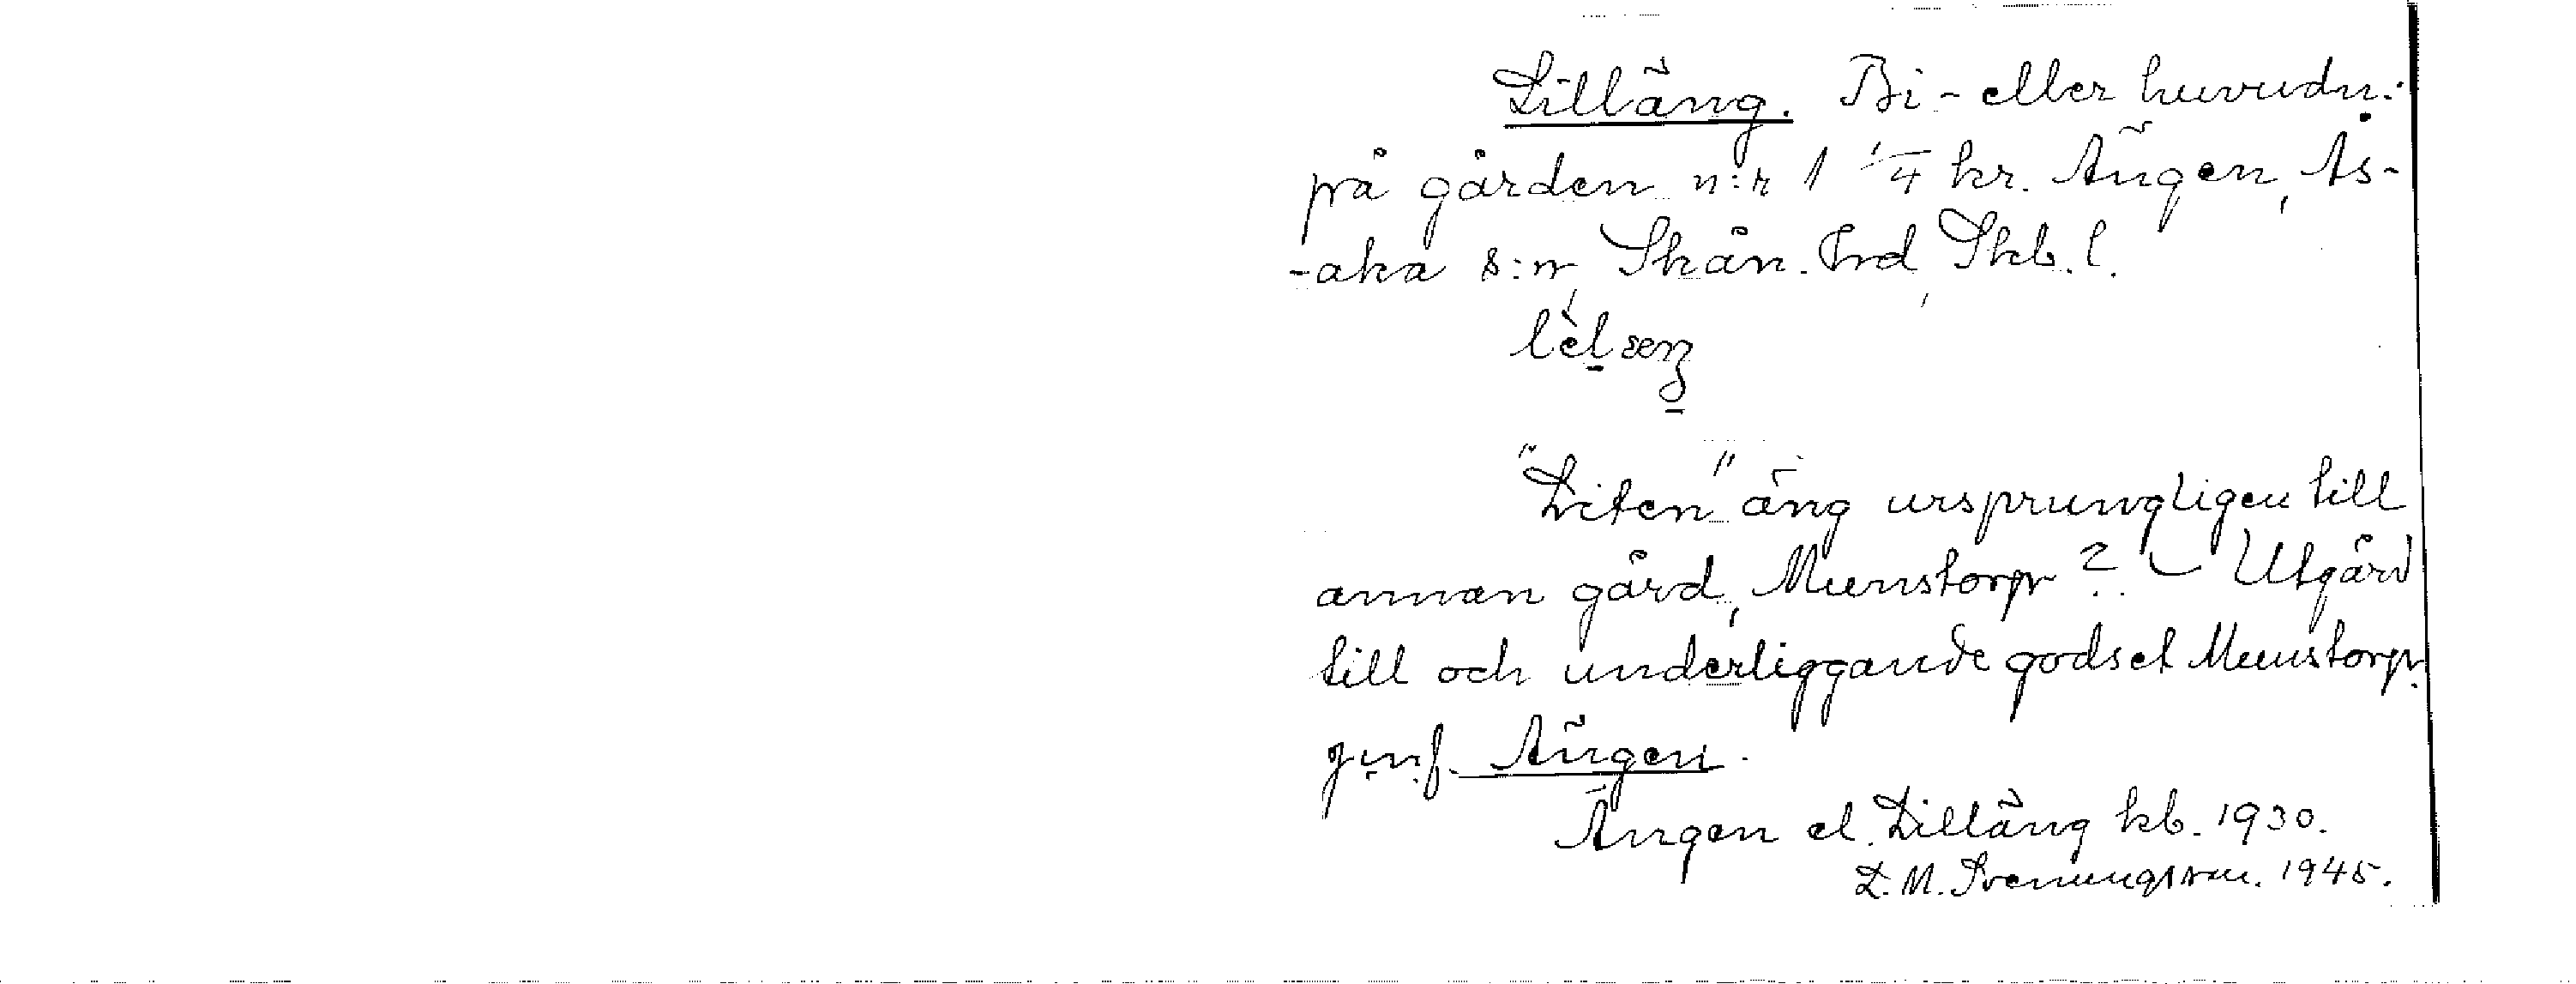 Lilläng. Bi- eller huvudn.
på gården n:r 1 1/4 kr. Ängen, As-
-aka s:n, Skån. hrd, Skb. l.
"Liten" äng ursprungligen till
annan gård, Munstorp? – Utgård
till och underliggande godset Munstorp.
jmf. Ängen.
Ängen el. Lilläng kb. 1930.
L. M. Svenungsson. 1945.